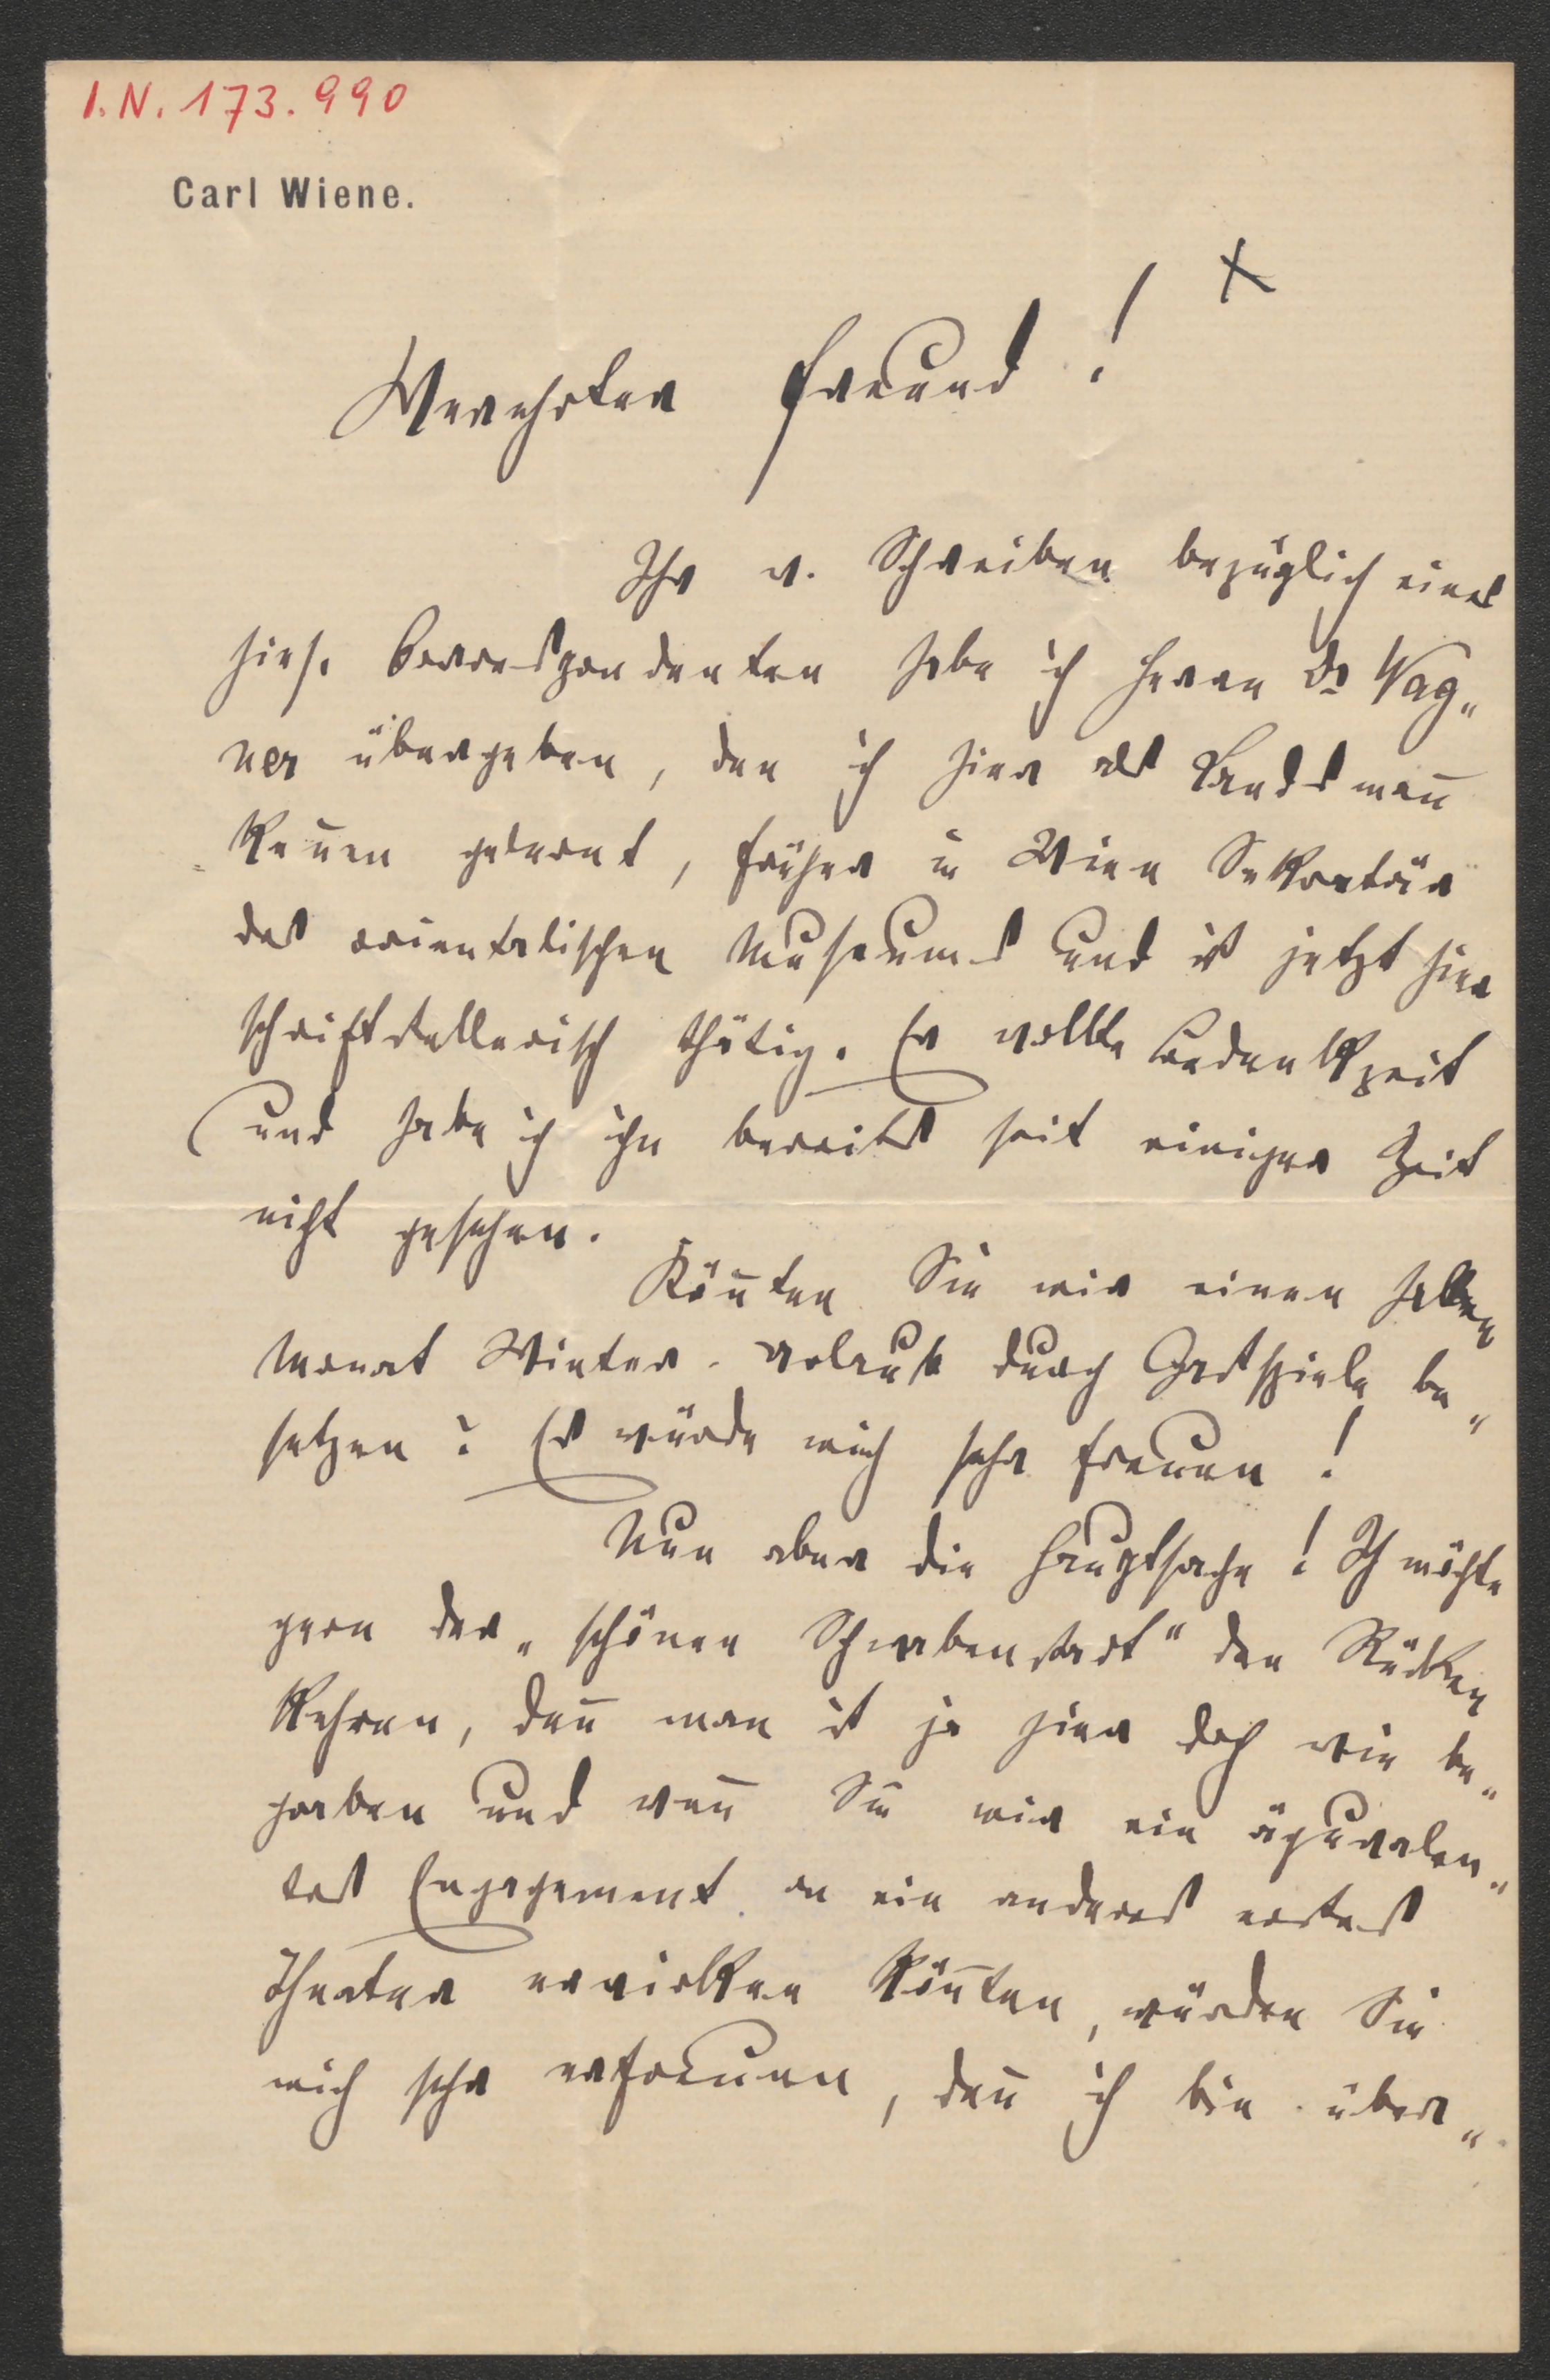 I.N. 173.990
Carl Wiene.
x
Verehrter Freund!
Ihr w. Schreiben bezüglich eines
hies. Correspondenten habe ich Herrn Dr Wag„
ner übergeben, den ich hier als Landsmañ
keñen gelernt, früher in Wien Sekretär
des orientalischen Museums und ist jetzt hier
schriftstellerisch thätig. Er wollte Bedenkzeit
und habe ich ihn bereits seit einiger Zeit
nicht gesehen.
Köñten Sie mir einen halben
Monat Winter-Urlaub durch Gastspiele be„
setzen? Es würde mich sehr freuen!
Nun aber die Hauptsache! Ich möchte
gern der „schönen Schwabenstadt" den Rücken
kehren, deñ man ist ja hier doch wie be„
graben und weñ Sie mir ein äquivalen„
tes Engagement an ein anderes erstes
Theater erwirken köñten, würden Sie
mich sehr erfreuen, deñ ich bin über„